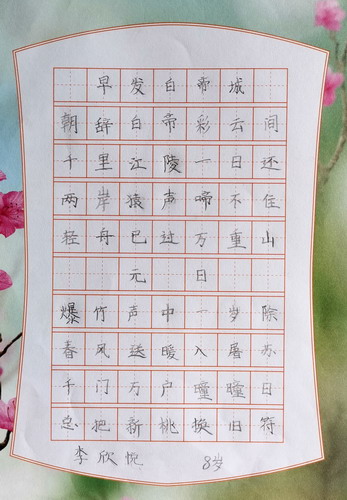 早发白帝城
朝辞白帝彩云间
千里江陵一日还
两岸猿声啼不住
轻舟已过万重山
元日
爆竹声中一岁除
春风送暖入屠苏
千门万户瞳瞳日
总把新桃换旧符
李欣 8岁